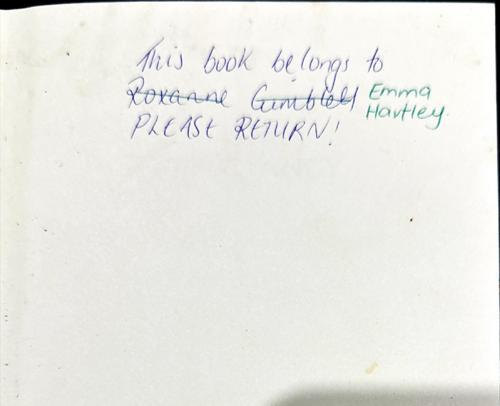 This book belongs to
Roxanne Gumbleff Emma
Hartley.
PLEASE RETURN!